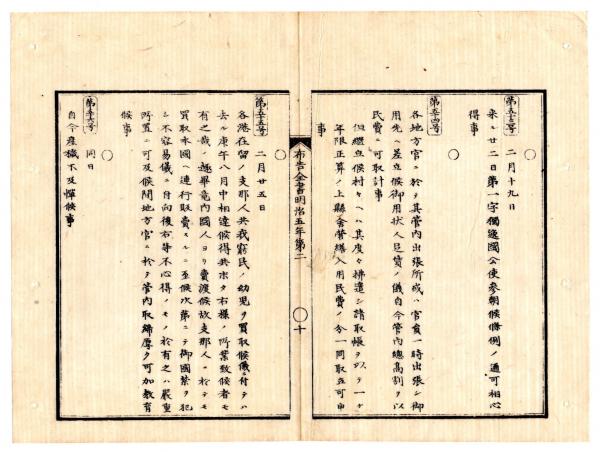 第五十三号
二月十九日
来ル廿二日第一字獨逸國公使参朝候條例ノ通可相心
得事
第五十四号
各地方官ニ於テ其管内出張所或ハ官員一時出張シ御
用先ヘ差立候御用状人足賃ノ儀自今管内總高割ヲ以
民費ニ可取計事
但継立候村々ヘハ其度々拂遣シ請取帳ヲ以テ一ケ
年限正算ノ上縣舎営繕入用民費ノ分一同取立可申
事
布告全書明治五年第二
十
第五十五号
二月廿五日
各港在留ノ支那人共我窮民ノ幼児ヲ買取候儀ニ付テハ
去ル庚午八月中相達候得共末タ右様ノ所業致候者モ
有之哉ニ趣畢竟内國人ヨリ賣渡候故支那人ニ於テモ
買取本國ヘ連行販賣スルニ至候次第ニテ御國禁ヲ犯
シ不容易儀ニ付向後右等不心得ノモノ於有之ハ嚴重
所置ニ可及候間地方官ニ於テ管内取締厚ク可加教育
候事
第五十六号
同日
自今産穢不及憚候事